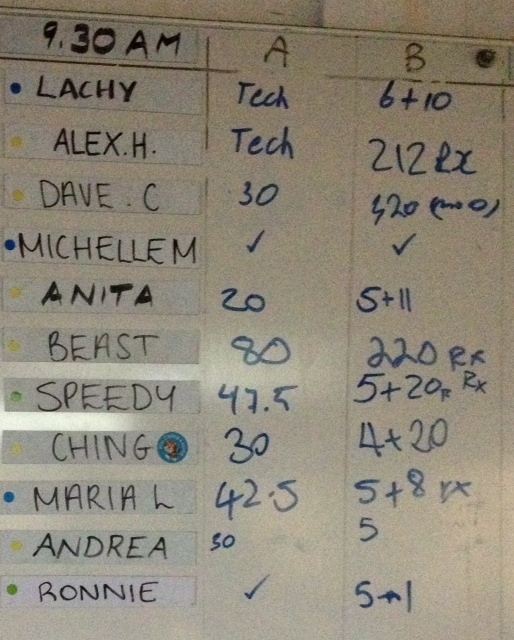 9.30 AM A B
LACHY Tech 6+10
ALEX.H. Tech 212 Rx
DAVE . C 30
MICHELLE M ✓ ✓
ANITA 20 5+11
BEAST 80 220 Rx
SPEEDY 47.5 5+20R Rx
CHING 30 4+20
MARIA L 42.5 5+8 rx
ANDREA 30 5
RONNIE ✓ 5+1